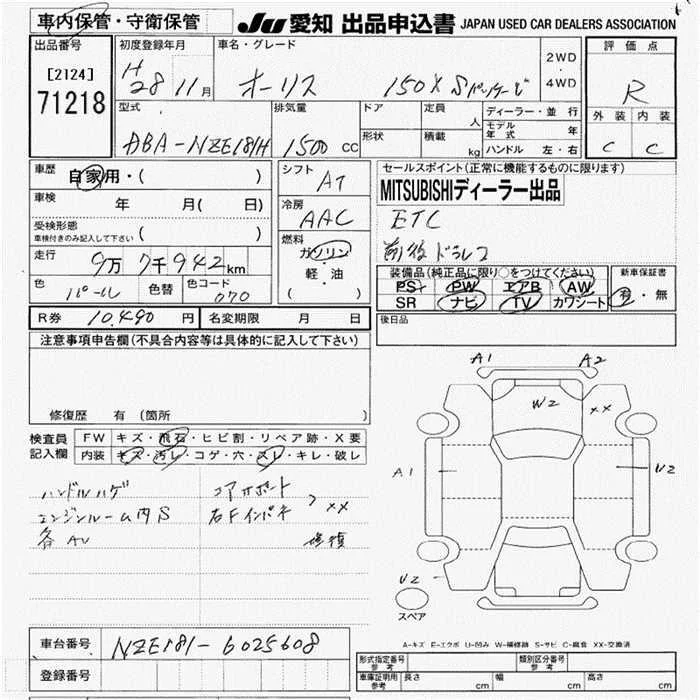 車内保管・守衛保管 JU 愛知 出品申込書 JAPAN USED CAR DEALERS ASSOCIATION
出品番号 初度登録年月 車名・グレード 2WD 評価点
[2124] H28 11月 オーリス 150X Sパッケージ 4WD R
71218 型式 排気量 ドア 定員 人 ディーラー・並行 外装 内装
モデル年式 年
DBA-NZE181H 1500 CC 形状 積載 kg ハンドル 左・右 C C
車歴 自家用・( ) シフト AT セールスポイント(正常に機能するものに限ります)
車検 年 月( 日) 冷房 AAC MITSUBISHIディーラー出品
受検形態 ( ) ETC
車検付きのみ記入して下さい
燃料 ガソリン 前後ドラレコ
走行 9万7千942km 軽・油 装備品(純正品に限り○をつけてください) 新車保証書
色 パール 色替 色コード 070 ( ) PS PW エアB AW 有・無
SR ナビ TV カワシート
R券 10,490円 名変期限 月 日 後日品
注意事項申告欄(不具合内容等は具体的に記入して下さい)
A1 A2
W2 XX
修復歴 有 (箇所
検査員 FW キズ・飛石・ヒビ割・リペア跡・X要
記入欄 内装 キズ・汚レ・コゲ・穴・スレ・キレ・破レ
A1 U2
ハンドルハゲ コアサポート
エンジンルーム内S 右Fインパネ XX
各AU 修復
U2
スペア
A-キズ E-エクボ U-凹み W-補修跡 S-サビ C-腐食 XX-交換済
車台番号 NZE181-6025608
形式指定番号 参考 類別区分番号 参考
登録番号 車庫証明用 参考 長さ cm 幅 cm 高さ cm